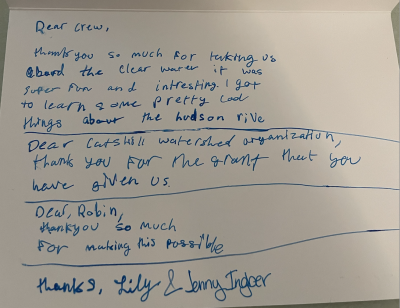 Dear crew,
thankyou so much for taking us
abord the clear water it was
super fun and intresting. I got
to learn some pretty cool
things about the hudson rive
Dear Catskill watershed organization,
thank you for the grant that you
have given us.
Dear, Robin,
thankyou so much
for making this possible
thanks, Lily & Jenny